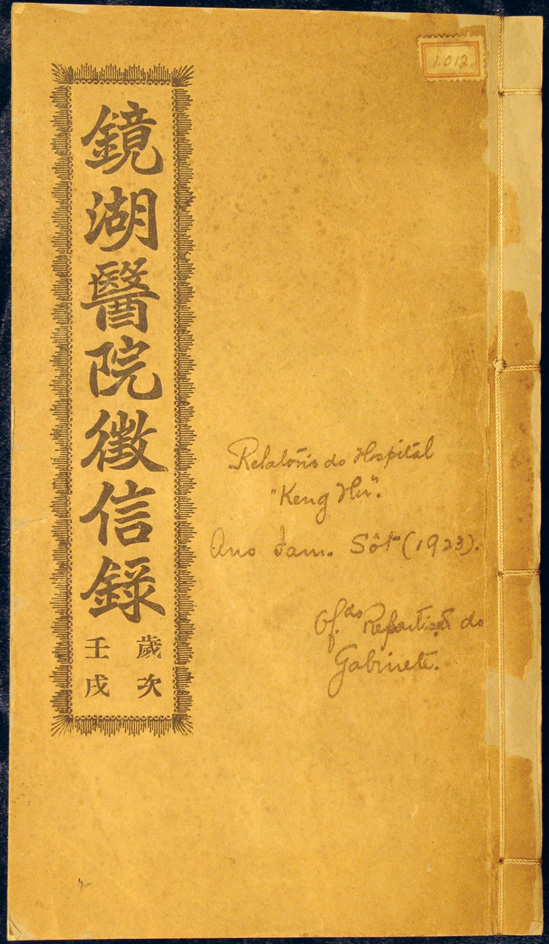 1.012
鏡湖醫院徵信錄
歲次
壬戌
Relatório do Hospital
"Keng Hu".
Ano Iam. Sôt (1923).
Of.do Repartição do
Gabinete.